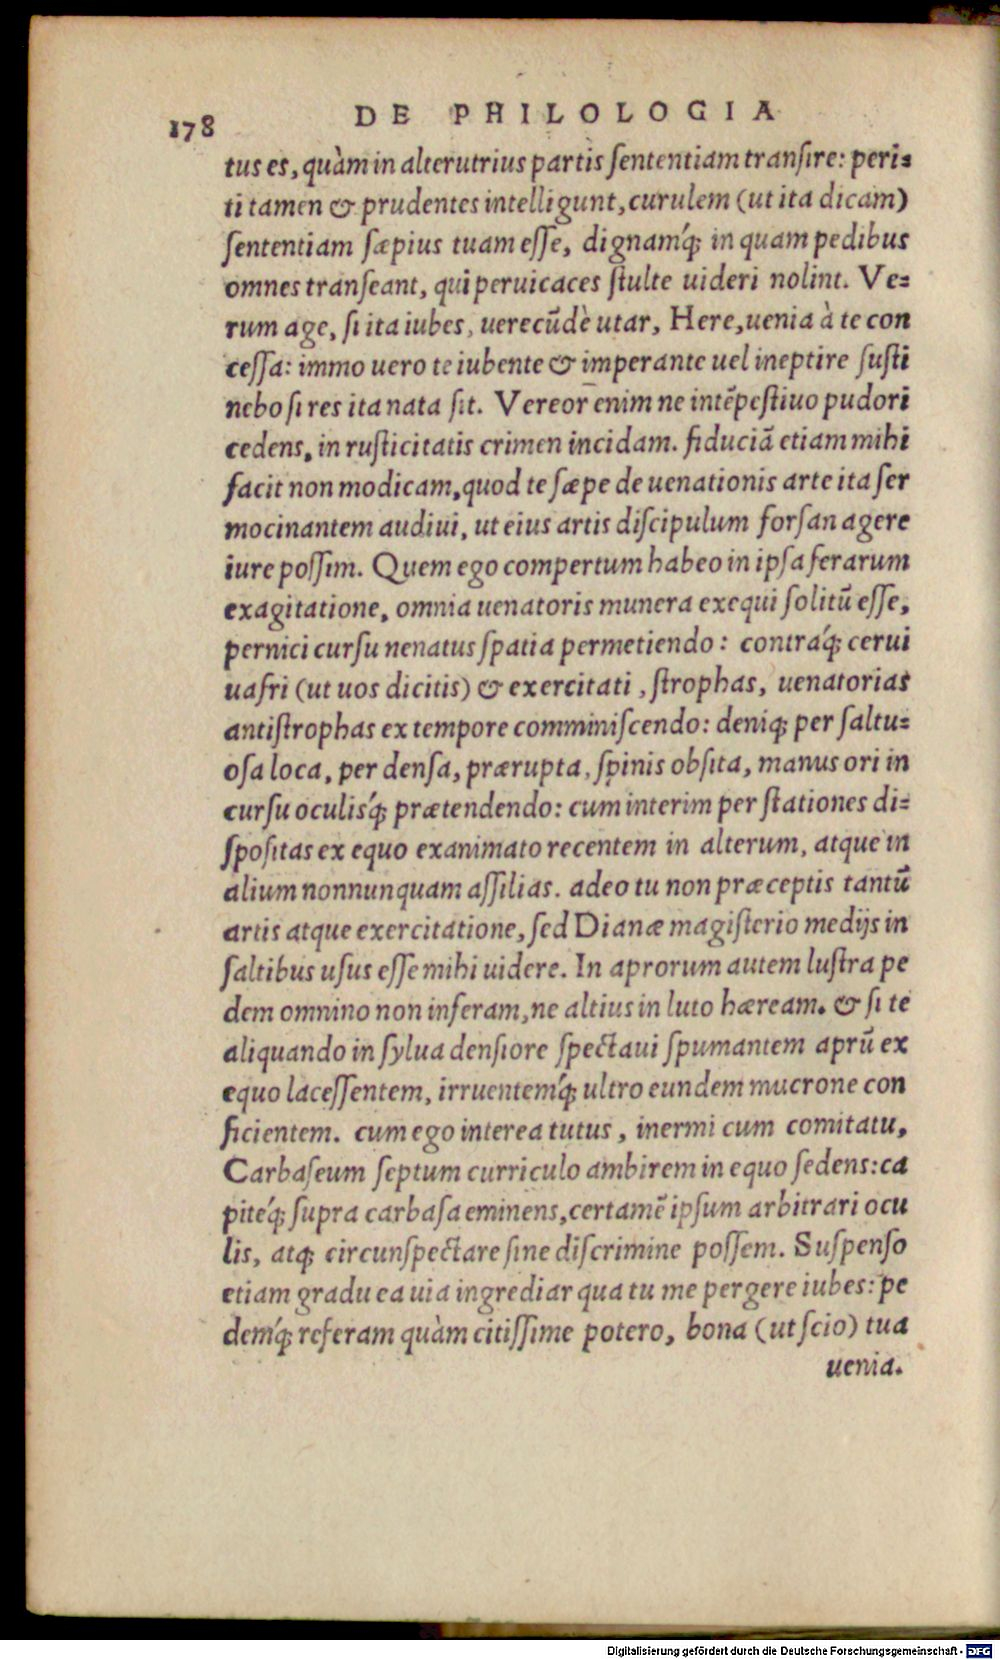 178 DE PHILOLOGIA
tus es, quàm in alterutrius partis ſententiam tranſire: peri=
ti tamen & prudentes intelligunt, curulem (ut ita dicam)
ſententiam ſæpius tuam eſſe, dignamq́ꝫ in quam pedibus
omnes tranſeant, qui peruicaces ſtulte uideri nolint. Ve=
rum age, ſi ita iubes, uerecũdè utar, Here, uenia à te con
ceſſa: immo uero te iubente & imperante uel ineptire ſuſti
nebo ſi res ita nata ſit. Vereor enim ne intẽpeſtiuo pudori
cedens, in ruſticitatis crimen incidam. fiduciã etiam mihi
facit non modicam, quod te ſæpe de uenationis arte ita ſer
mocinantem audiui, ut eius artis diſcipulum forſan agere
iure poſſim. Quem ego compertum habeo in ipſa ferarum
exagitatione, omnia uenatoris munera exequi ſolitũ eſſe,
pernici curſu nenatus ſpatia permetiendo: contraq́ꝫ cerui
uafri (ut uos dicitis) & exercitati, ſtrophas, uenatorias
antiſtrophas ex tempore comminiſcendo: deniqꝫ per ſaltu=
oſa loca, per denſa, prærupta, ſpinis obſita, manus ori in
curſu oculisq́ꝫ prætendendo: cum interim per ſtationes di=
ſpoſitas ex equo exanimato recentem in alterum, atque in
alium nonnunquam aſſilias. adeo tu non præceptis tantũ
artis atque exercitatione, ſed Dianæ magiſterio medijs in
ſaltibus uſus eſſe mihi uidere. In aprorum autem luſtra pe
dem omnino non inferam, ne altius in luto hæream. & ſi te
aliquando in ſylua denſiore ſpectaui ſpumantem aprũ ex
equo laceſſentem, irruentemq́ꝫ ultro eundem mucrone con
ficientem. cum ego interea tutus, inermi cum comitatu,
Carbaſeum ſeptum curriculo ambirem in equo ſedens: ca
piteq́ꝫ ſupra carbaſa eminens, certamẽ ipſum arbitrari ocu
lis, atqꝫ circunſpectare ſine diſcrimine poſſem. Suſpenſo
etiam gradu ea uia ingrediar qua tu me pergere iubes: pe
demq́ꝫ referam quàm citiſſime potero, bona (ut ſcio) tua
uenia.
Digitalisierung gefördert durch die Deutsche Forschungsgemeinschaft - DFG